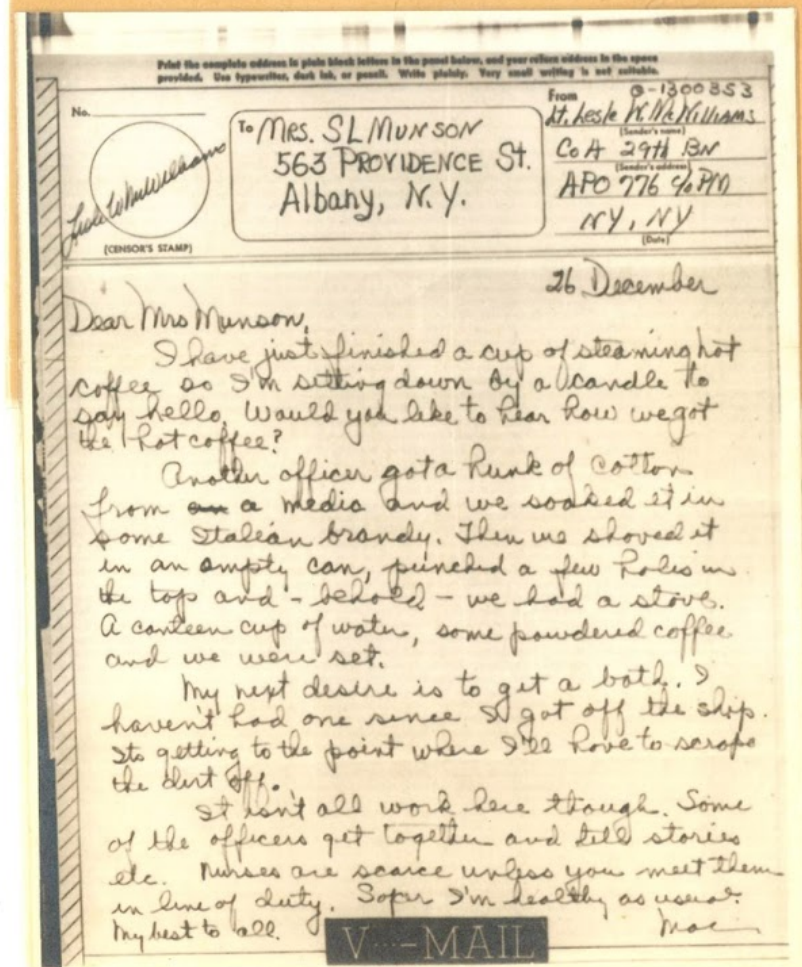 Print the complete address in plain block letters in the panel below, and your return address in the space
provided. Use typewriter, dark ink, or pencil. Write plainly. Very small writing is not suitable.
No.
(CENSOR'S STAMP)
To MRS. S L MUNSON
563 PROVIDENCE St.
Albany, N.Y.
From O-1300353
Lt. Leslie W. McWilliams
(Sender's name)
Co A 29th BN
(Sender's address)
APO 776 c/o PM
NY, NY
(Date)
26 December
Dear Mrs Munson,
I have just finished a cup of steaming hot
coffee so I'm setting down by a candle to
say hello. Would you like to hear how we got
the hot coffee?
Another officer got a hunk of cotton
from a medic and we soaked it in
some Italian brandy. Then we shoved it
in an empty can, punched a few holes in
the top and - behold - we had a stove.
A canteen cup of water, some powdered coffee
and we were set.
My next desire is to get a bath. I
haven't had one since I got off the ship.
Its getting to the point where I'll have to scrape
the dirt off.
It isn't all work here though. Some
of the officers get together and tell stories
etc. Nurses are scarce unless you meet them
in line of duty. Sofar I'm healthy as usual.
My best to all. Mac
V···-MAIL